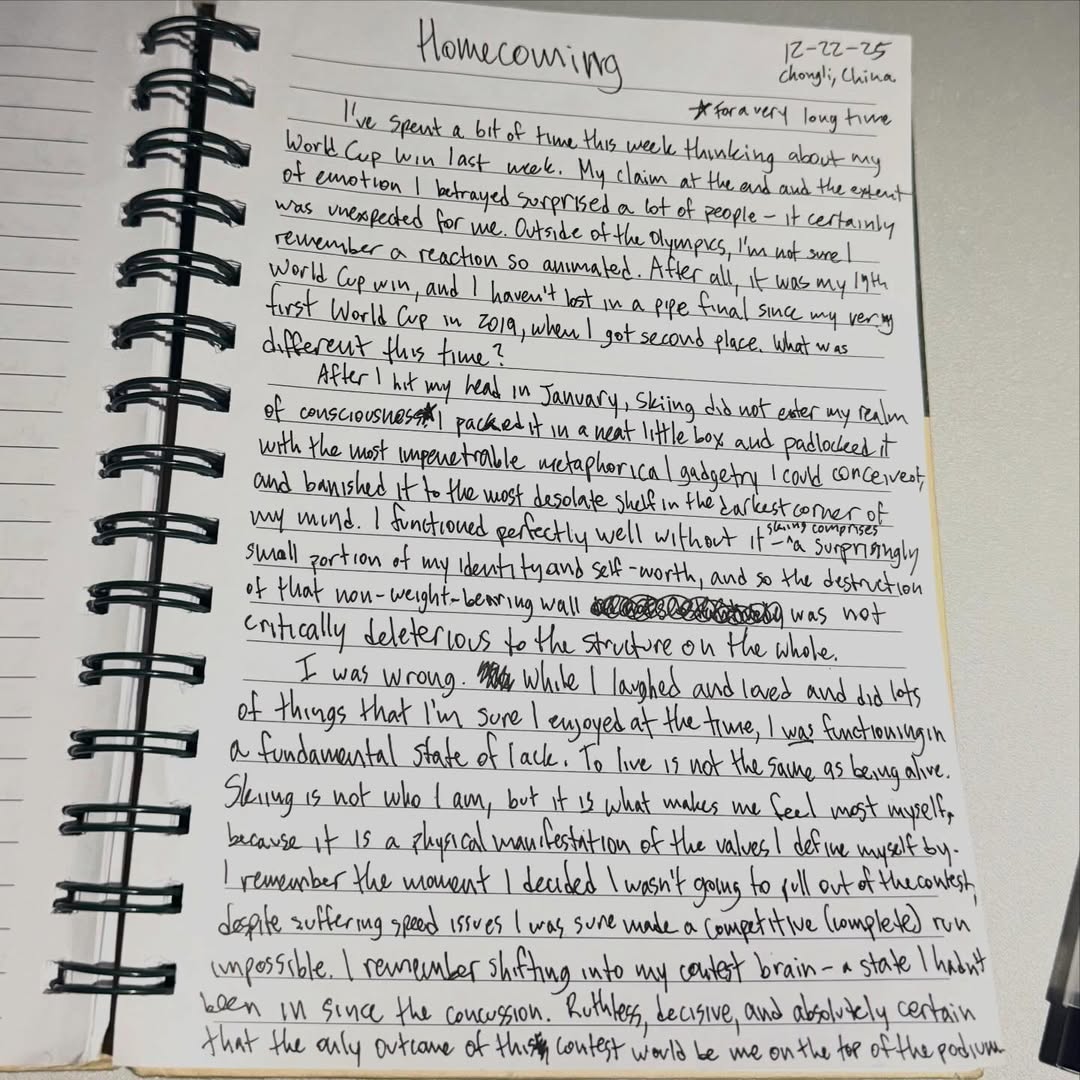 Homecoming
12-22-25
Chongli, China
*For a very long time
I've spent a bit of time this week thinking about my
World Cup win last week. My claim at the end and the extent
of emotion I betrayed surprised a lot of people – it certainly
was unexpected for me. Outside of the Olympics, I'm not sure I
remember a reaction so animated. After all, it was my 19th
World Cup win, and I haven't lost in a pipe final since my very
first World Cup in 2019, when I got second place. What was
different this time?
After I hit my head in January, skiing did not enter my realm
of consciousness* I packed it in a neat little box and padlocked it
with the most impenetrable metaphorical gadgetry I could conceive of,
and banished it to the most desolate shelf in the darkest corner of
my mind. I functioned perfectly well without it – ^a surprisingly
skiing comprises
small portion of my identity and self-worth, and so the destruction
of that non-weight-bearing wall was not
critically deleterious to the structure on the whole.
I was wrong. While I laughed and loved and did lots
of things that I'm sure I enjoyed at the time, I was functioning in
a fundamental state of lack. To live is not the same as being alive.
Skiing is not who I am, but it is what makes me feel most myself,
because it is a physical manifestation of the values I define myself by.
I remember the moment I decided I wasn't going to pull out of the contest,
despite suffering speed issues I was sure made a competitive (complete) run
impossible. I remember shifting into my contest brain – a state I hadn't
been in since the concussion. Ruthless, decisive, and absolutely certain
that the only outcome of this contest would be me on the top of the podium